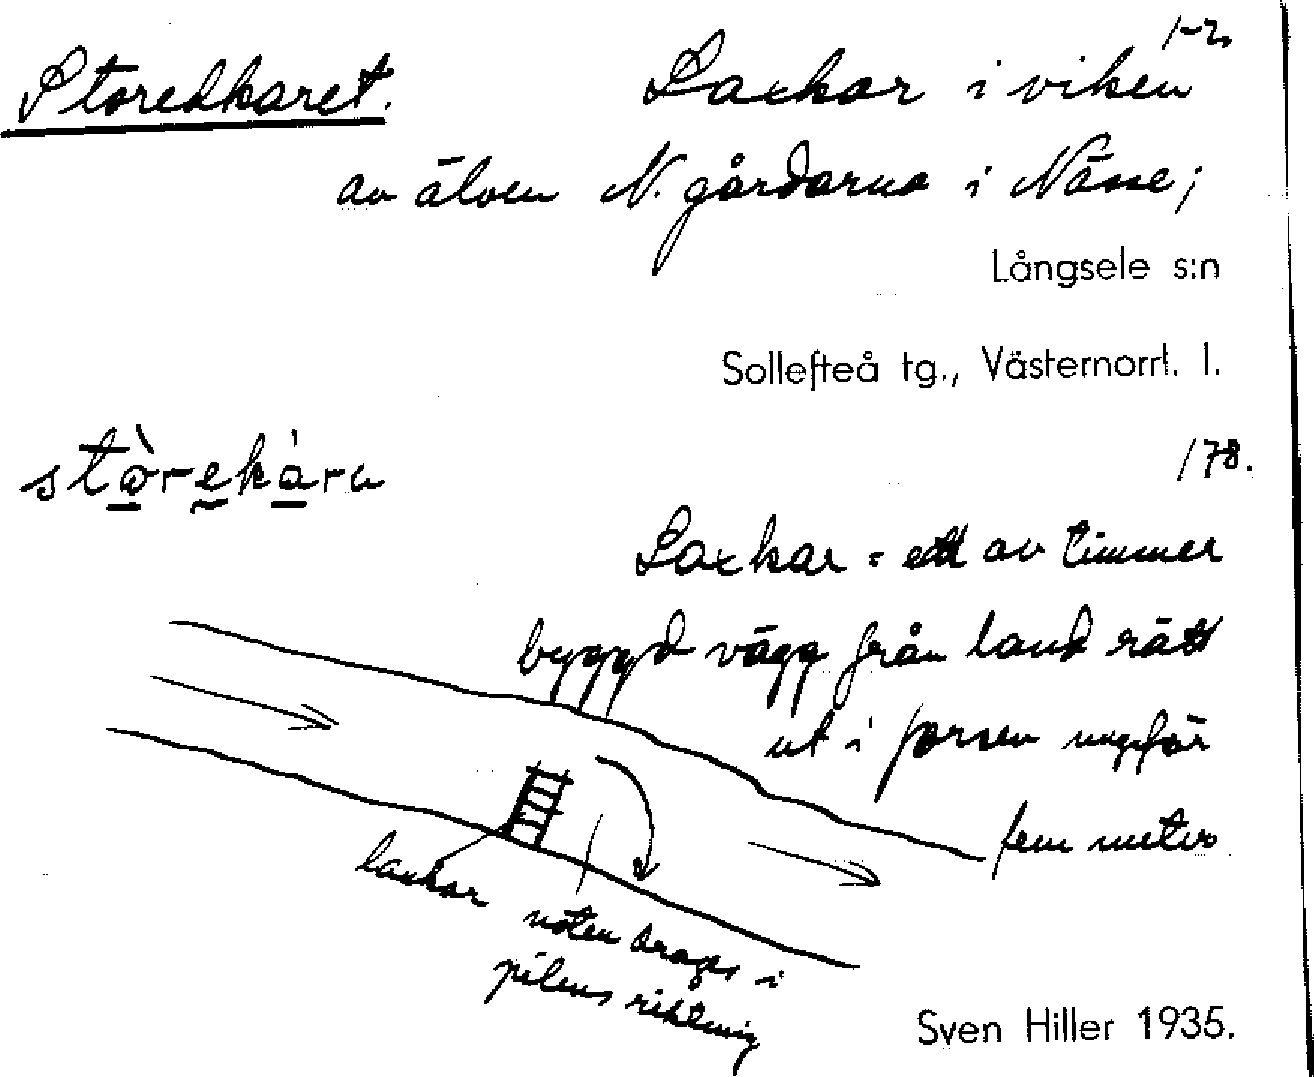 1-2
Storedkaret.
Laxkar i viken
av älven N. gårdarna i Nässe;
Långsele s:n
Sollefteå tg., Västernorrl. l.
178.
Laxkar = ett av timmer
byggd vägg från land rätt
ut i forsen ungefär
fem meter
laxkar
noten drages i
pilens riktning
Sven Hiller 1935.